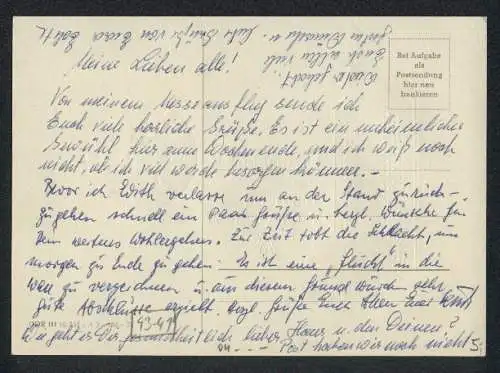 Meine Lieben alle!
Von meinem Messeausflug sende ich
Euch viele herzliche Grüße. Es ist ein unheimliches
Gewühl hier zum Wochenende, und ich weiß noch
nicht, ob ich viel werde besorgen können. –
Bevor ich Edith verlasse um an der Stand zurück-
zugehen schnell ein Paar Grüße u. herzl. Wünsche für
Dein weiteres Wohlergehen. Zur Zeit tobt die Schlacht, um
morgen zu Ende zu gehen. Es ist eine "Flucht" in die
zu verzeichnen u. aus diesem Grund wurden sehr
gute Abschlüsse erzielt. Herzl. Grüße Euch Allen Euer
Wie geht es Dir gesundheitlich lieber Hans u. den Deinen?
Post haben wir noch nicht
Bei Aufgabe
als
Postsendung
hier neu
frankieren
Euch allen viel